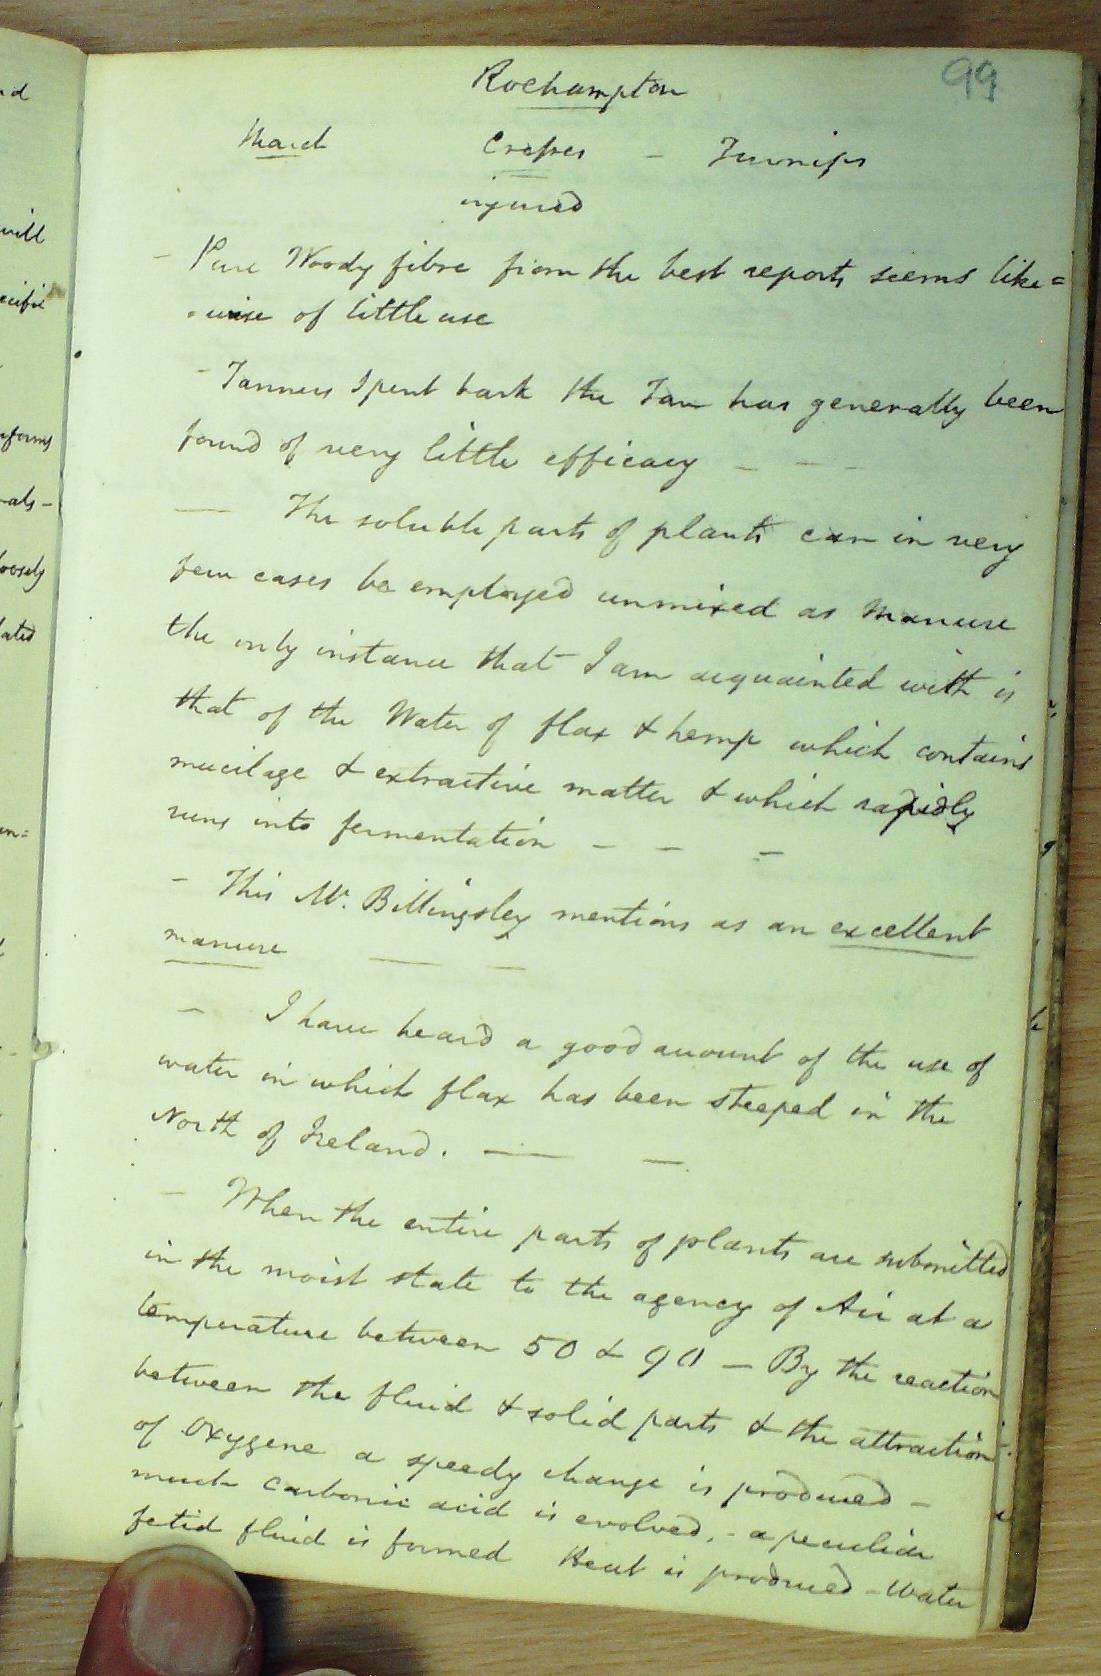 99
Roehampton
March Crops - Turnips
injured
- Pure Woody fibre from the best reports seems like=
-wise of little use
- Tanners Spent bark the Tan has generally been
found of very little efficacy - - -
— The soluble parts of plants can in very
few cases be employed unmixed as manure
the only instance that I am acquainted with is
that of the Water of flax & hemp which contains
mucilage & extractive matter & which rapidly
runs into fermentation - - -
- This Mr. Billingsley mentions as an excellent
manure — —
- I have heard a good account of the use of
water in which flax has been steeped in the
North of Ireland. — —
- When the entire parts of plants are submitted
in the moist state to the agency of Air at a
temperature between 50 & 90 — By the reaction
between the fluid & solid parts & the attraction
of Oxygene a speedy change is produced -
much carbonic acid is evolved, - a peculiar
fetid fluid is formed Heat is produced - Water